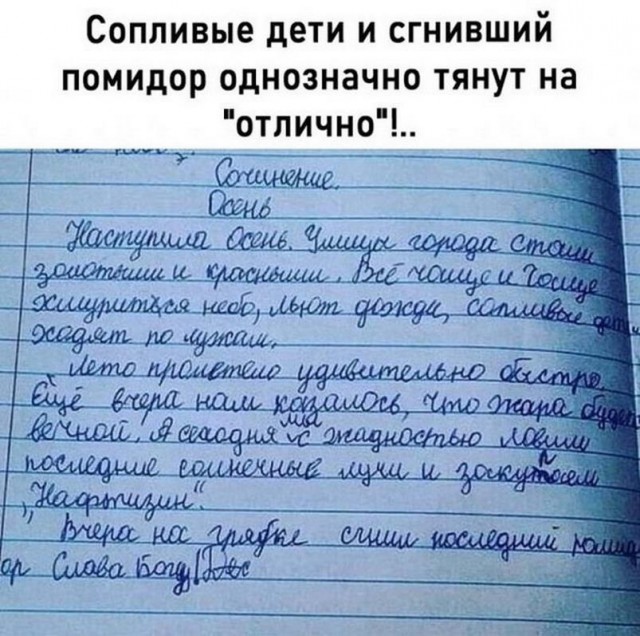 Сопливые дети и сгнивший
помидор однозначно тянут на
"отлично"!..
Сочинение.
Осень
Наступила Осень. Улицы города стали
золотыми и красными. Всё чаще и чаще
хмуриться небо, льют дожди, сопливые
ходят по лужам.
Лето пролетело удивительно быстро.
Ещё вчера нам казалось, что жара будет
вечной. А сегодня мы с жадностью ловим
последние солнечные лучи и
"Нафтизин".
Вчера на грядке сгнил последний помид
ор Слава Богу!